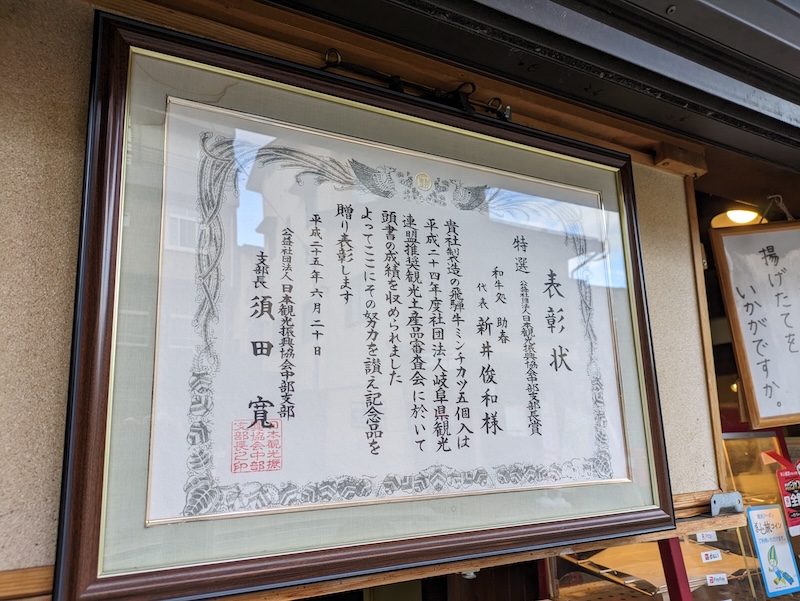 表彰状
特選 公益社団法人日本観光振興協会中部支部長賞
和牛処 助春
代表 新井俊和様
貴社製造の飛騨牛ミンチカツ五個入は
平成二十四年度社団法人岐阜県観光
連盟推奨観光土産品審査会に於いて
頭書の成績を収められました
よってここにその努力を讃え記念品を
贈り表彰します
平成二十五年六月二十日
公益社団法人日本観光振興協会中部支部
支部長 須田 寛
日本観光振
興協会中部
支部長之印
揚げたてを
いかがですか。
PayPay